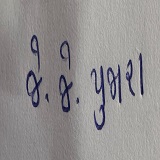 જે. જે. પુમરા